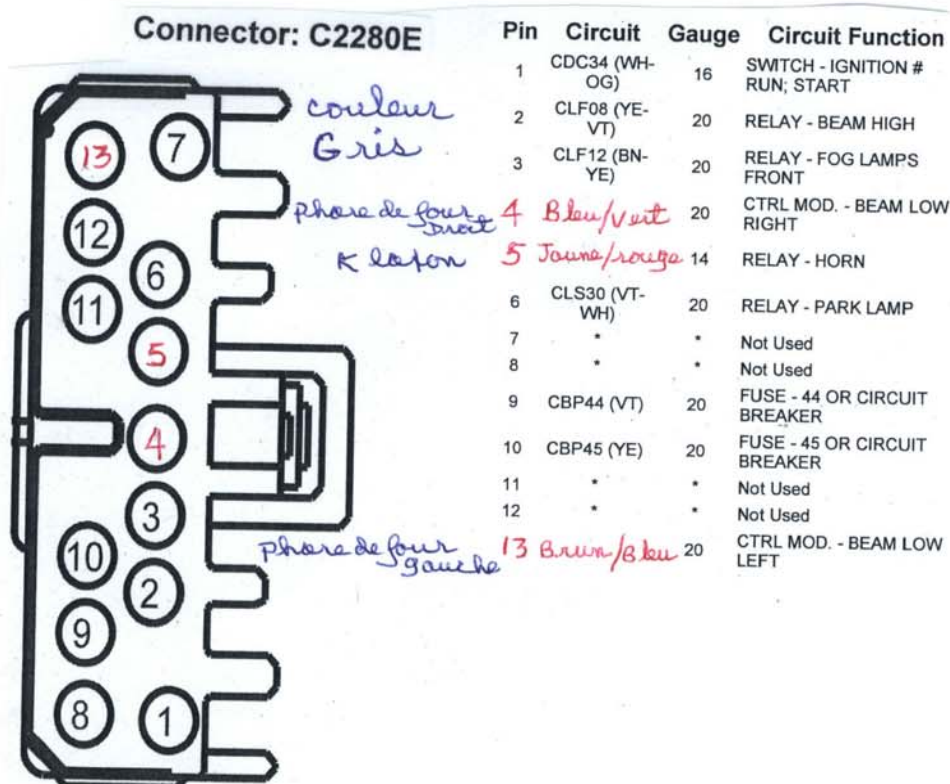 Connector: C2280E
Pin Circuit Gauge Circuit Function
1 CDC34 (WH-OG) 16 SWITCH - IGNITION # RUN; START
2 CLF08 (YE-VT) 20 RELAY - BEAM HIGH
3 CLF12 (BN-YE) 20 RELAY - FOG LAMPS FRONT
phare de four Droit 4 Bleu/Vert 20 CTRL MOD. - BEAM LOW RIGHT
Klaxon 5 Jaune/rouge 14 RELAY - HORN
6 CLS30 (VT-WH) 20 RELAY - PARK LAMP
7 * * Not Used
8 * * Not Used
9 CBP44 (VT) 20 FUSE - 44 OR CIRCUIT BREAKER
10 CBP45 (YE) 20 FUSE - 45 OR CIRCUIT BREAKER
11 * * Not Used
12 * * Not Used
phare de four gauche 13 Brun/Bleu 20 CTRL MOD. - BEAM LOW LEFT
couleur
Gris
13 7
12
6
11
5
4
3
10
2
9
8 1